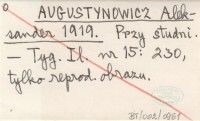 AUGUSTYNOWICZ Alek-
sander 1919. Przy studni.
— Tyg. Il. nr 15: 230,
tylko reprod. obrazu.
BT/002/0961